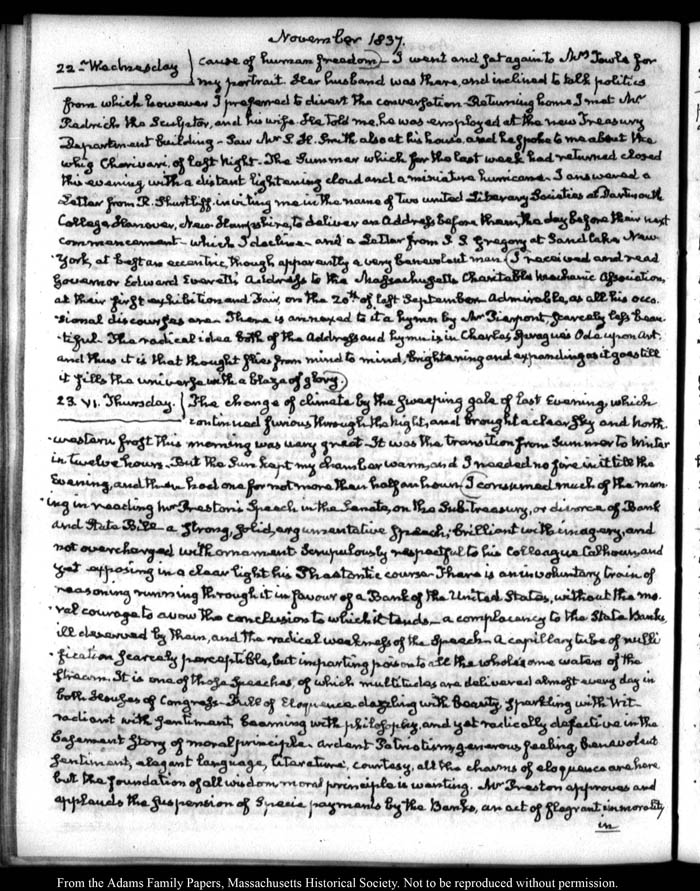 November 1837.
22. Wednesday
cause of human freedom) — I went and sat again to Mrs Towle for
my portrait. Her husband was there, and inclined to talk politics
from which however I preferred to divert the conversation. Returning home I met Mr
Pedrick the Sculptor, and his wife. He told me, he was employed at the new Treasury
Department building — Saw Mr S. H. Smith also at his house, and he spoke to me about the
whig Charivari, of last Night. The Summer which for the last week had returned closed
this evening with a distant lightening cloud and a miniature hurricane. I answered a
Letter from R. Shurtliff, inviting me in the name of two united Literary Societies at Dartmouth
College Hanover, New-Hampshire, to deliver an Address before them, the day before their next
commencement — which I decline — and a Letter from S. S. Gregory at Sand lake New-
York, at best an eccentric, though apparently a very benevolent man (I received and read
Governor Edward Everett's Address to the Massachusetts Charitable Mechanic Association,
at their first exhibition and Fair, on the 20th. of last September. Admirable, as all his occa-
sional discourses are. There is annexed to it a hymn by Mr Pierpont, scarcely less beau-
tiful. The radical idea both of the Address and hymn is in Charles Sprague's Ode upon Art.
and thus it is that thought flies from mind to mind, brightening and expanding as it goes till
it fills the universe with a blaze of glory.)
23. VI. Thursday.
The change of climate by the sweeping gale of last Evening, which
continued furious through the Night, and brought a clear sky and North-
western frost this morning was very great. It was the transition from Summer to Winter
in twelve hours. But the Sun kept my chamber warm, and I needed no fire in it till the
Evening, and then had one for not more than half an hour. (I consumed much of the morn-
ing in reading Mr Preston's Speech in the Senate, on the Sub-Treasury, or divorce of Bank
and State Bill — a strong, solid, argumentative speech, brilliant with imagery, and
not overcharged with ornament. Scrupulously respectful to his Colleague Calhoun, and
yet exposing in a clear light his Phaetontic course. There is an involuntary train of
reasoning running through it in favour of a Bank of the United States, without the mo-
ral courage to avow the conclusion to which it tends — a complacency to the State Banks,
ill deserved by them, and the radical weakness of the Speech — A capillary tube of nulli-
fication scarcely perceptible, but imparting poison to all the wholesome waters of the
stream. It is one of those speeches, of which multitudes are delivered almost every day in
both Houses of Congress. Full of Eloquence dazzling with Beauty, sparkling with Wit
radiant with sentiment, beaming with philosophy, and yet radically defective in the
basement story of moral principle — ardent Patriotism, generous feeling, benevolent
sentiment, elegant language, literature, courtesy, all the charms of eloquence are here
but the foundation of all wisdom moral principle is wanting. Mr Preston approves and
applauds the suspension of Specie payments by the Banks, an act of flagrant immorality
in
From the Adams Family Papers, Massachusetts Historical Society. Not to be reproduced without permission.